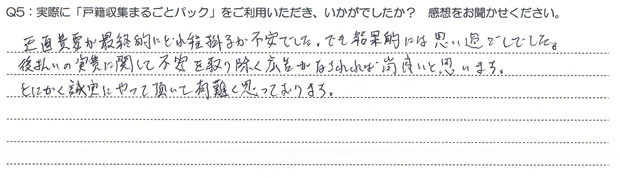 Q5：実際に「戸籍収集まるごとパック」をご利用いただき、いかがでしたか？ 感想をお聞かせください。
正直費用が最終的にどれ程掛るか不安でした。でも結果的には思い過ごしでした。
後払いの実費に関して不安を取り除く広告がなされれば尚良いと思います。
とにかく誠実にやって頂いて有難く思っております。